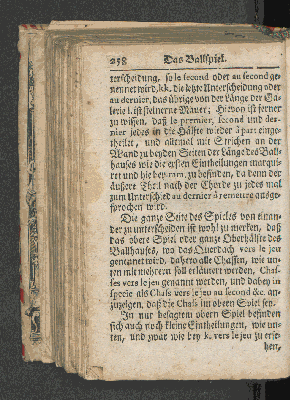 258 Das Ballspiel.
terscheidung, so le second oder au second ge-
nennet wird, kk. die letzte Unterscheidung oder
au dernier, das übrige von der Länge der Ga-
lerie l. ist steinerne Mauer; Hievon ist ferner
zu wissen, daß le premier, second und der-
nier jedes in die Hälfte wieder à part einge-
theilet, und allemal mit Strichen an der
Wand zu beyden Seiten der Länge des Ball-
hauses wie die ersten Eintheilungen marqui-
ret und hie bey zu befinden, da denn der
äussere Theil nach der Chorde zu jedes mal
zum Unterschied au dernier à remeure ausge-
sprochen wird.
Die ganze Seite des Spieles von einan-
der zu unterscheiden ist wohl zu merken, daß
das obere Spiel oder ganze Oberhälfte des
Ballhauses, wo das Querdach vers le jeu
genennet wird, dahero alle Chassen, wie un-
ten mit mehrern soll erläutert werden, Chas-
ses vers le jeu genannt werden, und dabey in
specie als Chass vers le jeu au second &c. an-
zuzeigen, daß die Chass im obern Spiel sey.
In nur besagtem obern Spiel befinden
sich auch noch kleine Eintheilungen, wie un-
ten, und zwar wie bey k. vers le jeu zu erse-
hen,